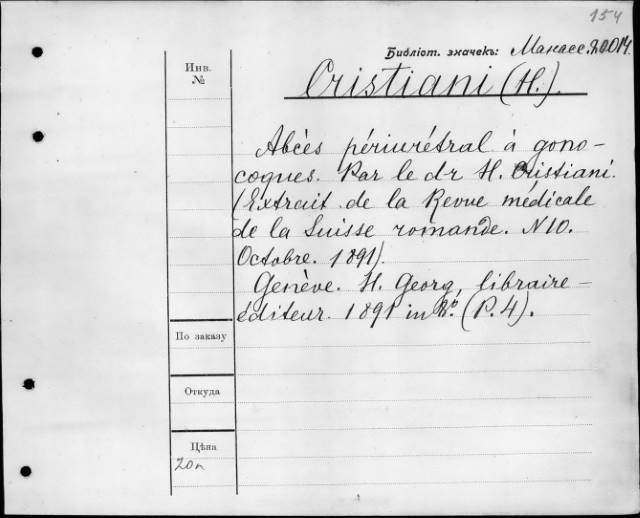 154
Библіот. значекъ: Манасс. 20014.
Инв.
№
Cristiani (H.).
Abcès périurétral à gono-
coques. Par le dr H. Cristiani.
(Extrait de la Revue médicale
de la Suisse romande. N 10.
Octobre. 1891).
Genève. H. Georg, libraire-
éditeur. 1891 in 8º. (P. 4).
По заказу
Откуда
Цѣна
20к